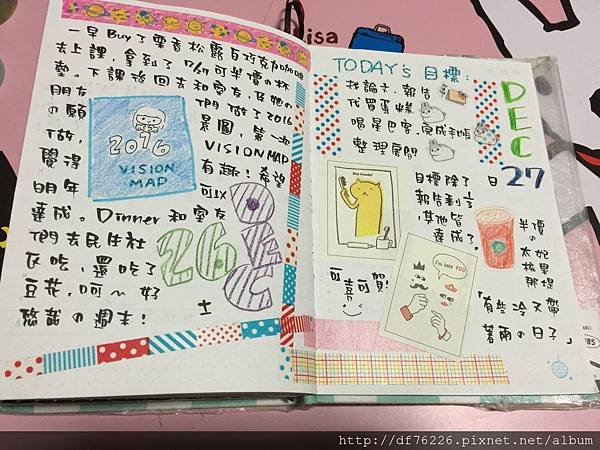 一早Buy了栗香松露白巧克力咖啡
去上課,拿到了12/17可半價の杯
墊。下課後回去和室友,及她の
朋友們做了2016
の願景圖,第一次
做,VISION MAP
覺得有趣!希望
明年可以
達成。Dinner和室友
們去民生社
区吃,還吃了
豆花,呵~好
悠哉の週末!
土
2016
VISION
MAP
26
DEC
TODAY's 目標:
找論文,報告
代買蛋糕
喝星巴客,完成手帳
整理房間
DEC
27
日
目標除了
報告剩一,
其他皆
達成了。
可喜可賀!
Buy Honey!
I'm into YOU
半價
の
太妃
核果
那堤
「有些冷又帶
著雨の日子」
isa
185
http://df76226.pixnet.net/album